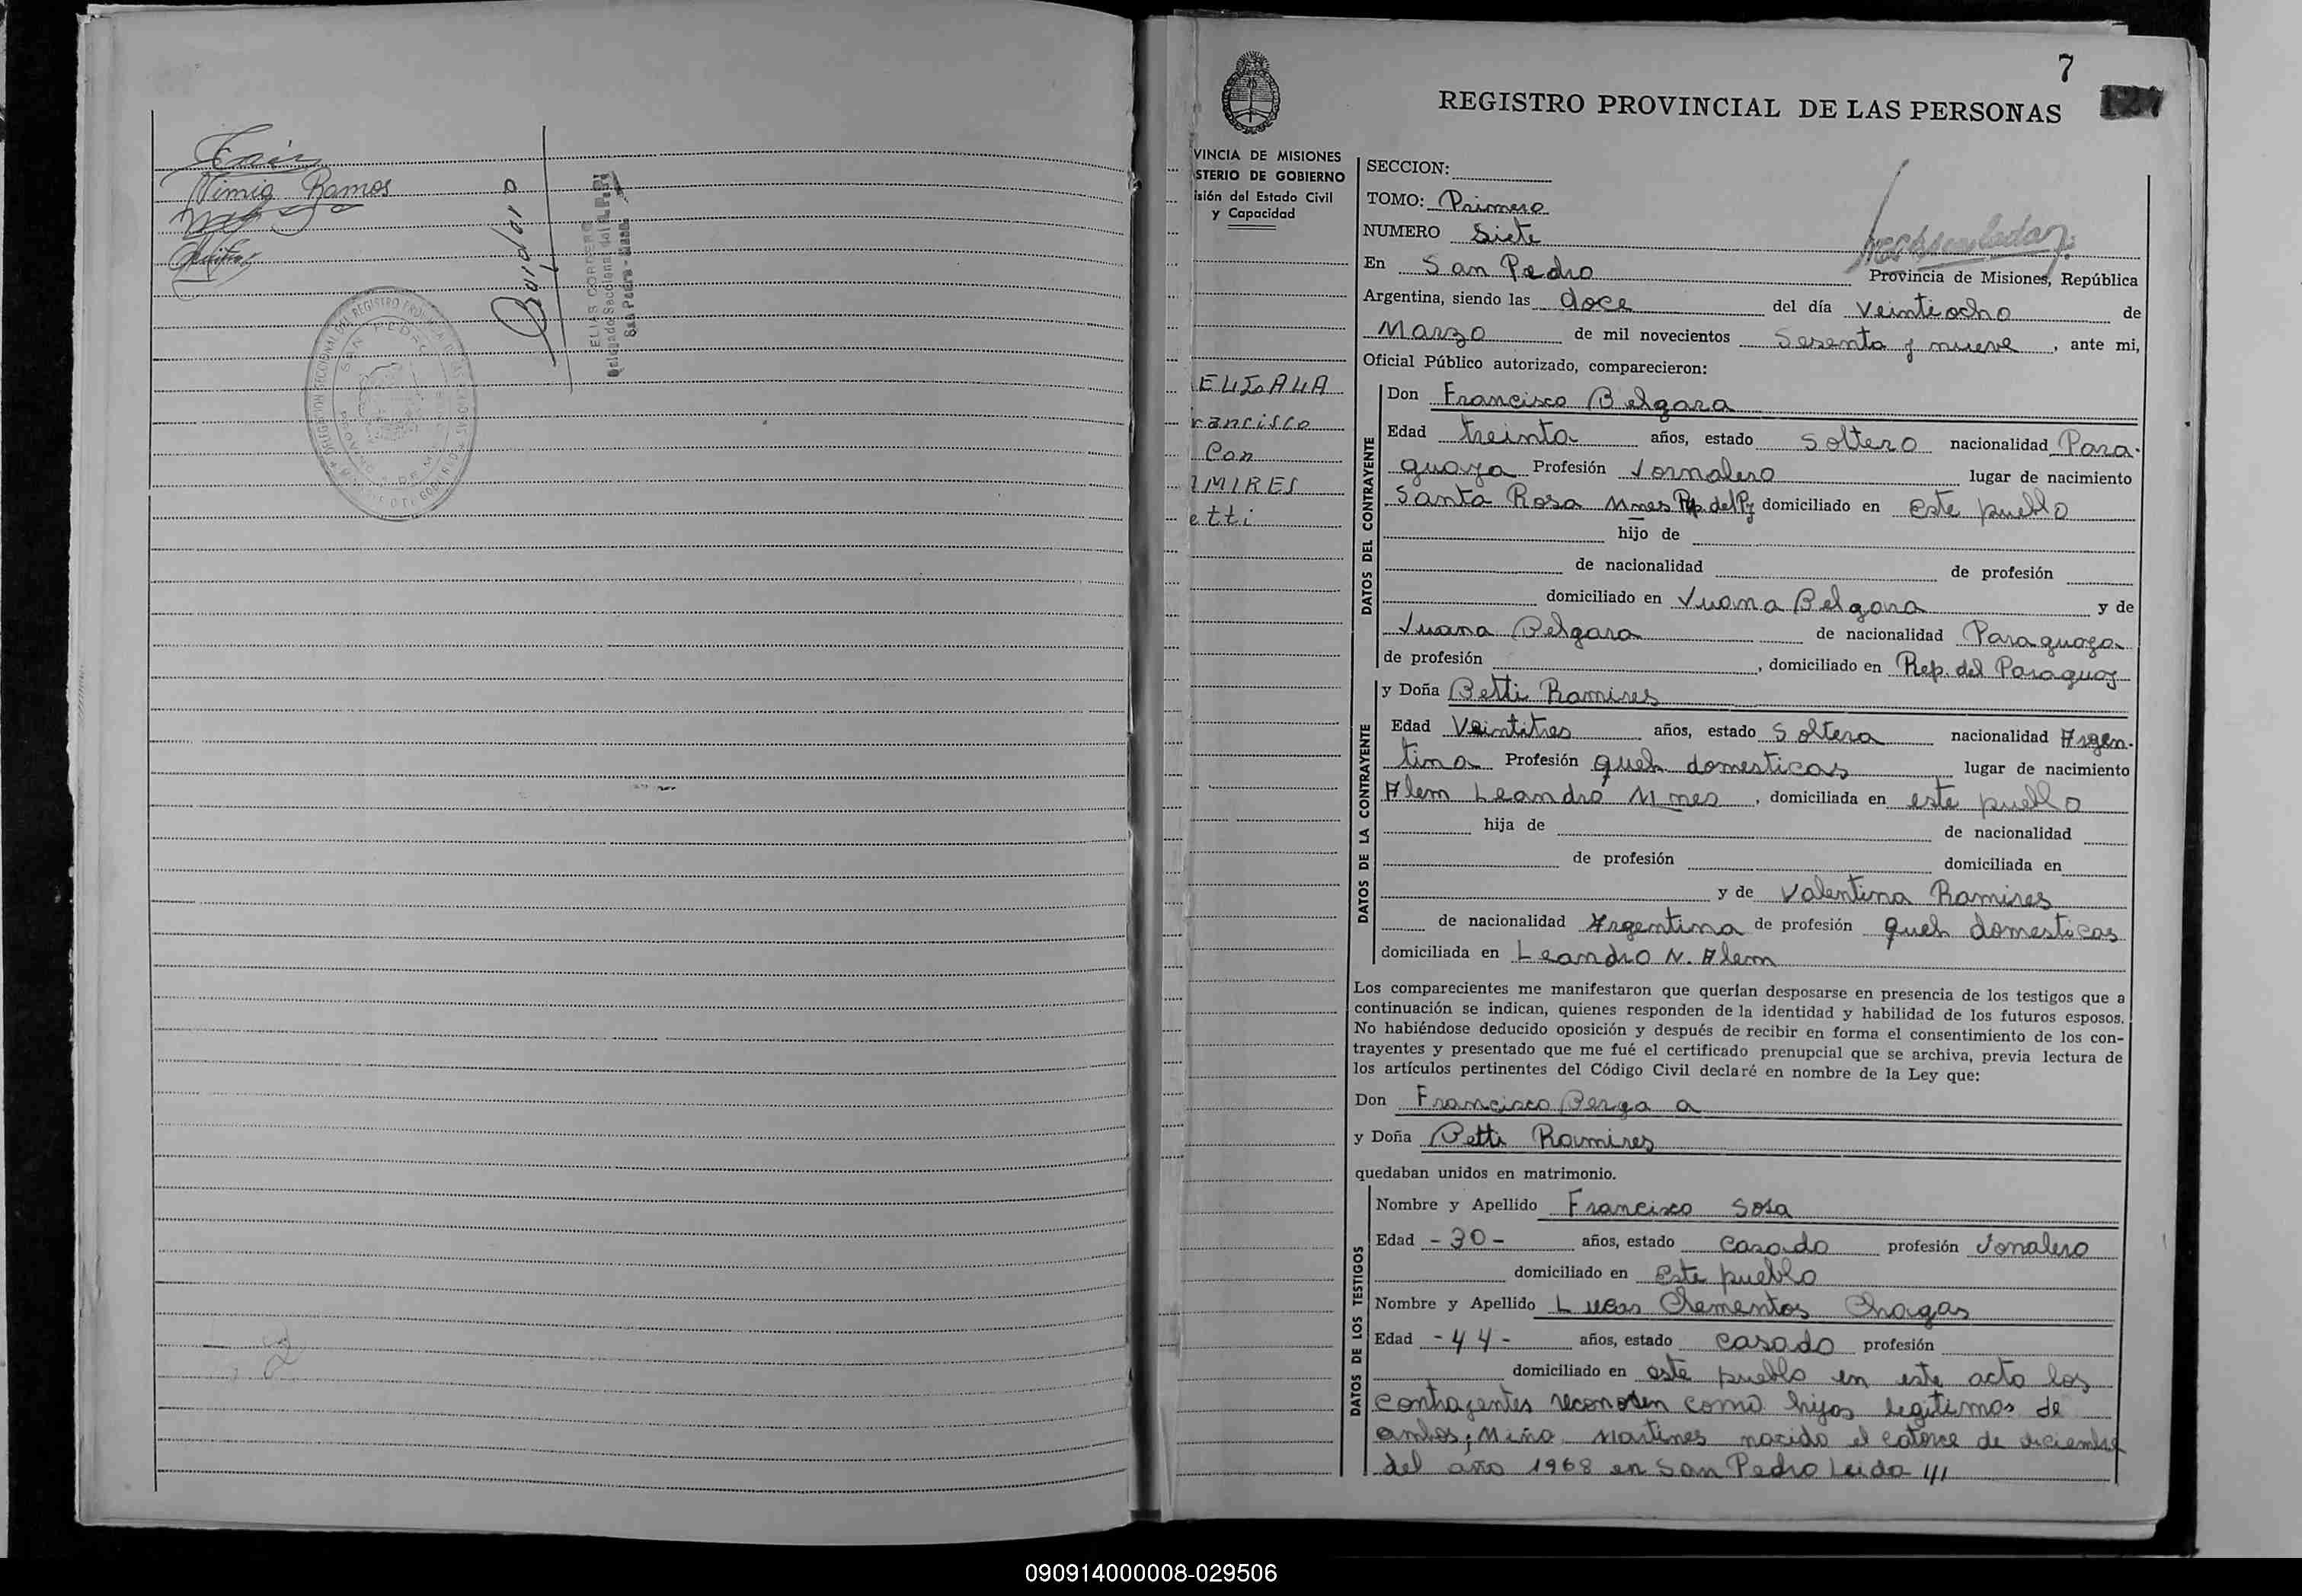 Nimia Ramos
ELIAS CORDERO
Delegado Seccional del R.P.P.
San Pedro - Mnes.
7
REGISTRO PROVINCIAL DE LAS PERSONAS
VINCIA DE MISIONES
STERIO DE GOBIERNO
isión del Estado Civil
y Capacidad
ELGARA
rancisco
Con
MIRES
etti
SECCION:
TOMO: Primero
NUMERO Siete
En San Pedro Provincia de Misiones, República
Argentina, siendo las doce del día Veintiocho de
Marzo de mil novecientos Sesenta y nueve, ante mi,
Oficial Público autorizado, comparecieron:
DATOS DEL CONTRAYENTE
Don Francisco Belgara
Edad treinta años, estado Soltero nacionalidad Para-
guaya Profesión Jornalero lugar de nacimiento
Santa Rosa Mnes Rep. del Py domiciliado en este pueblo
hijo de
de nacionalidad de profesión
domiciliado en Juana Belgara y de
Juana Belgara de nacionalidad Paraguaya
de profesión , domiciliado en Rep. del Paraguay
DATOS DE LA CONTRAYENTE
y Doña Betti Ramires
Edad Veintitres años, estado Soltera nacionalidad Argen-
tina Profesión queh domesticos lugar de nacimiento
Alem Leandro Mnes, domiciliada en este pueblo
hija de de nacionalidad
de profesión domiciliada en
y de Valentina Ramires
de nacionalidad Argentina de profesión queh domesticos
domiciliada en Leandro N. Alem
Los comparecientes me manifestaron que querían desposarse en presencia de los testigos que a
continuación se indican, quienes responden de la identidad y habilidad de los futuros esposos.
No habiéndose deducido oposición y después de recibir en forma el consentimiento de los con-
trayentes y presentado que me fué el certificado prenupcial que se archiva, previa lectura de
los artículos pertinentes del Código Civil declaré en nombre de la Ley que:
Don Francisco Berga a
y Doña Betti Ramires
quedaban unidos en matrimonio.
DATOS DE LOS TESTIGOS
Nombre y Apellido Francisco Sosa
Edad -30- años, estado casado profesión Jonalero
domiciliado en Este pueblo
Nombre y Apellido Lucas Clementos Chagas
Edad -44- años, estado casado profesión
domiciliado en este pueblo en este acto los
contrayentes reconocen como hijos legitimos de
ambos; Miño Martines nacido el catorce de diciembre
del año 1968 en San Pedro Leida
090914000008-029506